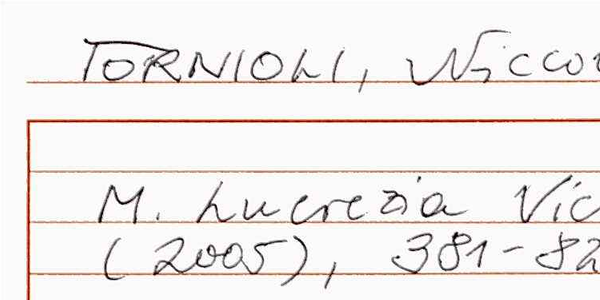 TORNIOLI, Nicco
M. Lucrezia Vic
(2005), 381-82